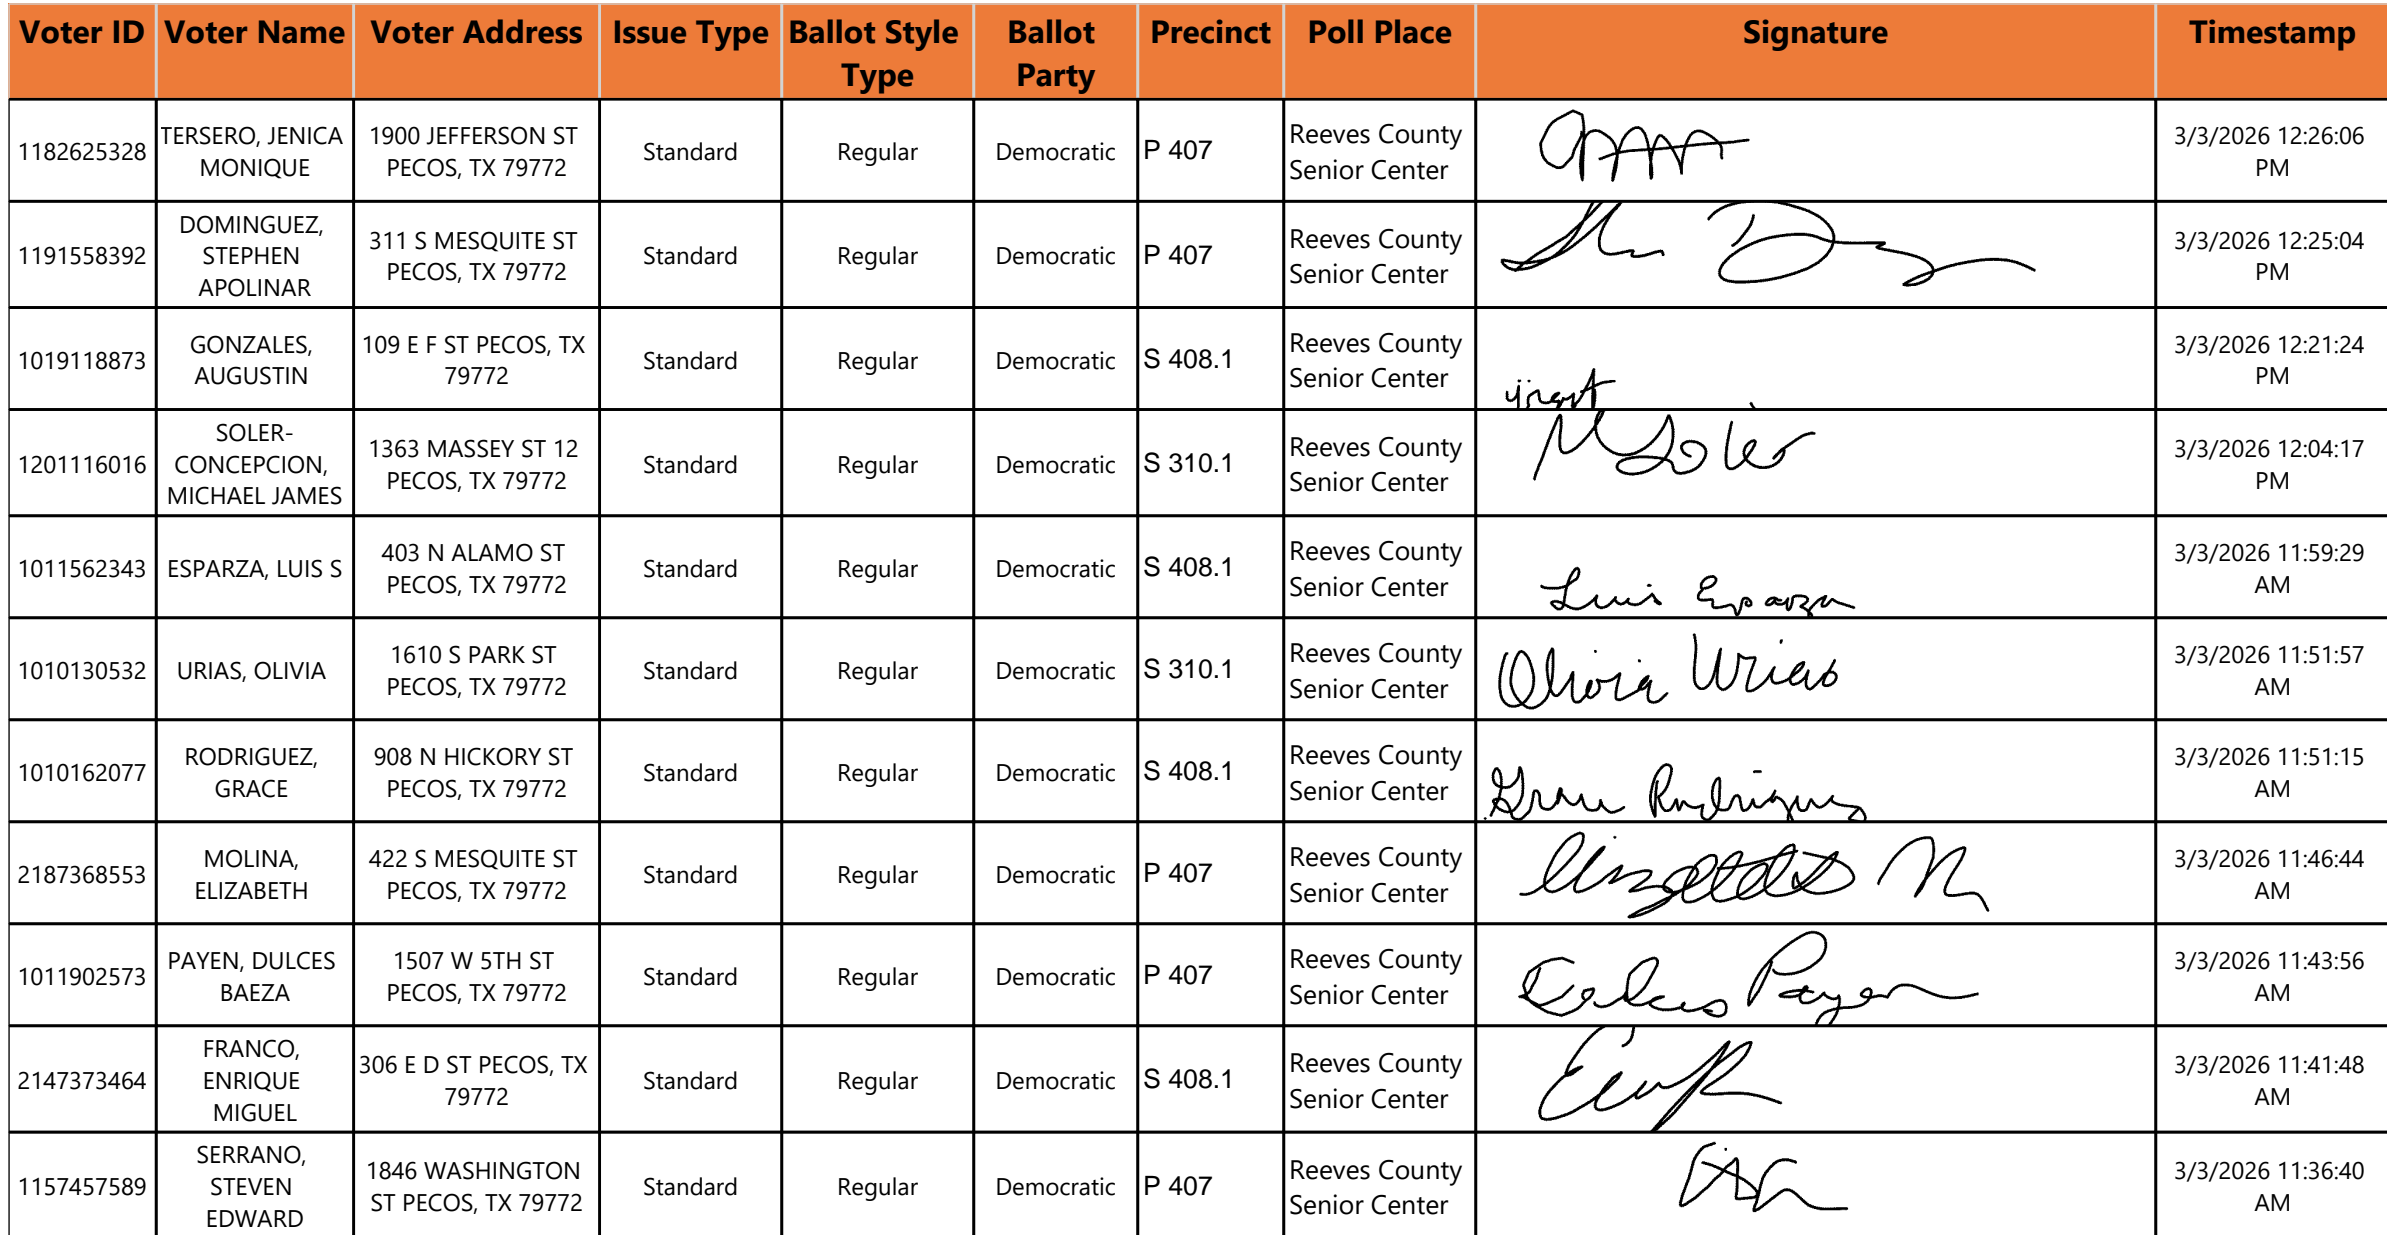 Voter ID Voter Name Voter Address Issue Type Ballot Style Type Ballot Party Precinct Poll Place Signature Timestamp
1182625328 TERSERO, JENICA MONIQUE 1900 JEFFERSON ST PECOS, TX 79772 Standard Regular Democratic P 407 Reeves County Senior Center 3/3/2026 12:26:06 PM
1191558392 DOMINGUEZ, STEPHEN APOLINAR 311 S MESQUITE ST PECOS, TX 79772 Standard Regular Democratic P 407 Reeves County Senior Center 3/3/2026 12:25:04 PM
1019118873 GONZALES, AUGUSTIN 109 E F ST PECOS, TX 79772 Standard Regular Democratic S 408.1 Reeves County Senior Center 3/3/2026 12:21:24 PM
1201116016 SOLER-CONCEPCION, MICHAEL JAMES 1363 MASSEY ST 12 PECOS, TX 79772 Standard Regular Democratic S 310.1 Reeves County Senior Center M Soler 3/3/2026 12:04:17 PM
1011562343 ESPARZA, LUIS S 403 N ALAMO ST PECOS, TX 79772 Standard Regular Democratic S 408.1 Reeves County Senior Center Luis Esparza 3/3/2026 11:59:29 AM
1010130532 URIAS, OLIVIA 1610 S PARK ST PECOS, TX 79772 Standard Regular Democratic S 310.1 Reeves County Senior Center Olivia Urias 3/3/2026 11:51:57 AM
1010162077 RODRIGUEZ, GRACE 908 N HICKORY ST PECOS, TX 79772 Standard Regular Democratic S 408.1 Reeves County Senior Center Grace Rodriguez 3/3/2026 11:51:15 AM
2187368553 MOLINA, ELIZABETH 422 S MESQUITE ST PECOS, TX 79772 Standard Regular Democratic P 407 Reeves County Senior Center 3/3/2026 11:46:44 AM
1011902573 PAYEN, DULCES BAEZA 1507 W 5TH ST PECOS, TX 79772 Standard Regular Democratic P 407 Reeves County Senior Center Dulces Payen 3/3/2026 11:43:56 AM
2147373464 FRANCO, ENRIQUE MIGUEL 306 E D ST PECOS, TX 79772 Standard Regular Democratic S 408.1 Reeves County Senior Center 3/3/2026 11:41:48 AM
1157457589 SERRANO, STEVEN EDWARD 1846 WASHINGTON ST PECOS, TX 79772 Standard Regular Democratic P 407 Reeves County Senior Center 3/3/2026 11:36:40 AM